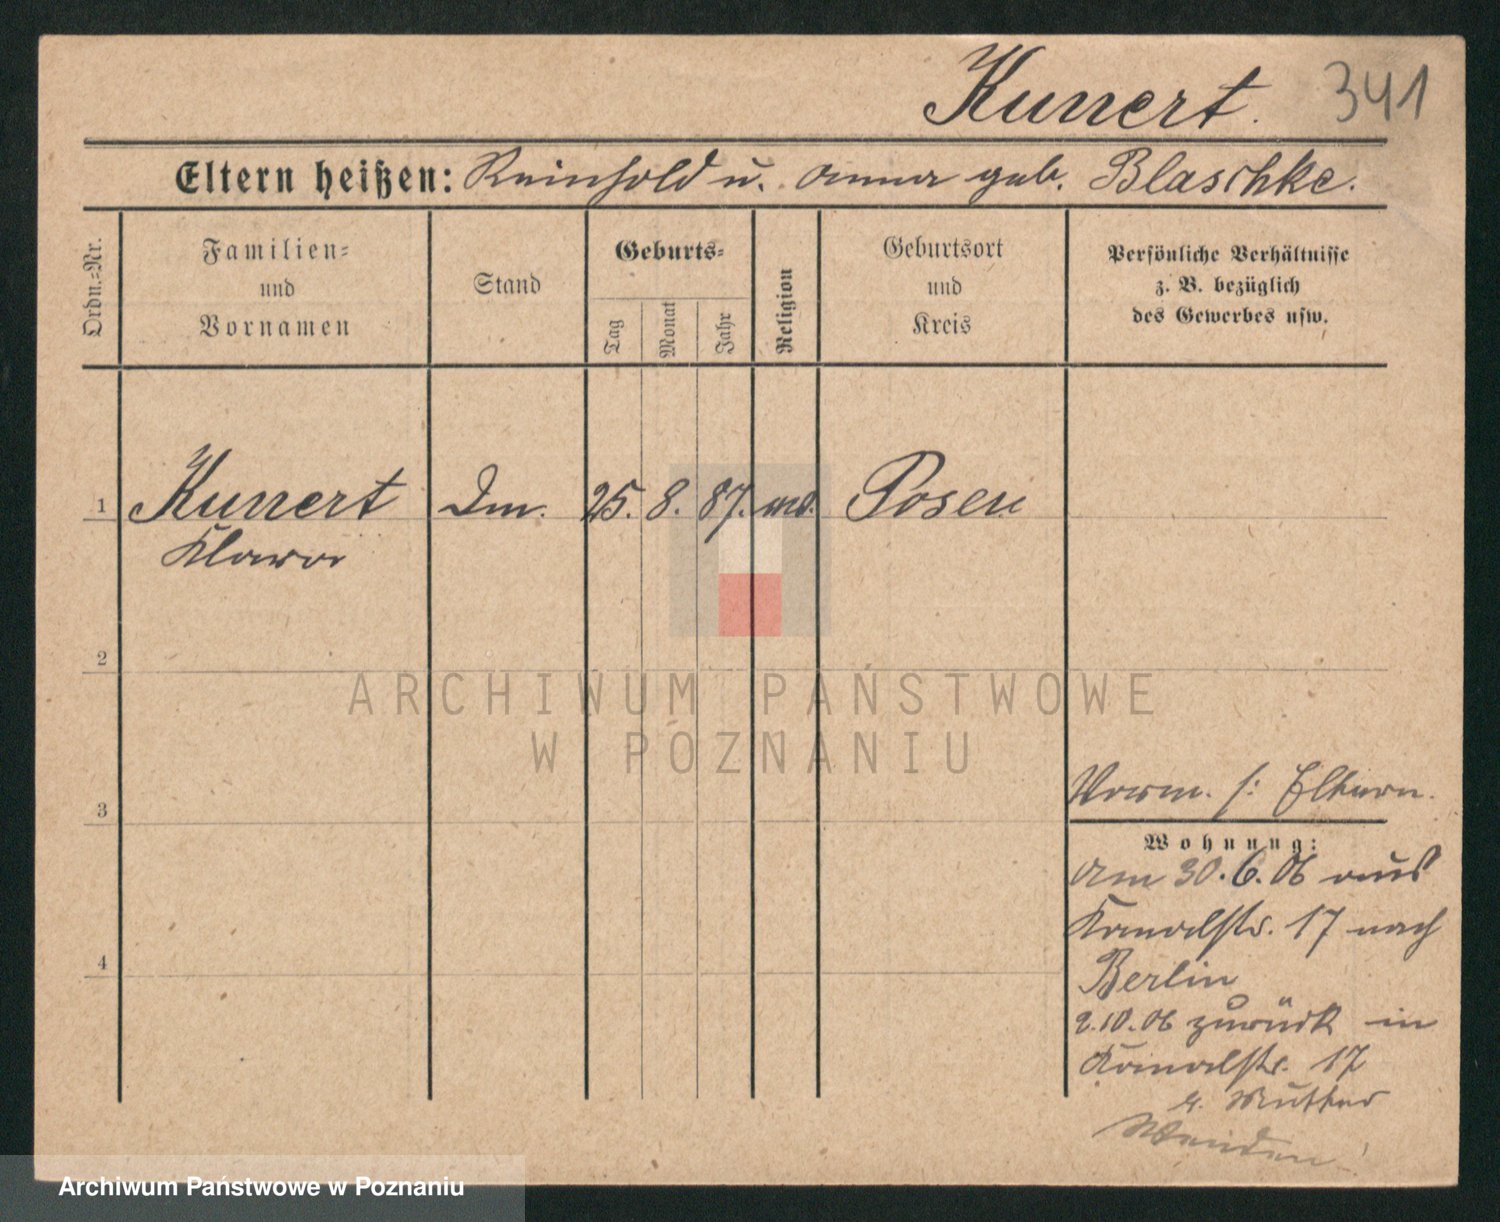 Kunert. 341
Eltern heißen: Reinhold u. Anna geb. Blaschke.
Ordn.=Nr.
Familien=
und
Vornamen
Stand
Geburts=
Tag
Monat
Jahr
Religion
Geburtsort
und
Kreis
Persönliche Verhältnisse
z. B. bezüglich
des Gewerbes usw.
1 Kunert 25. 8. 87. Posen
Klara
2
3
4
Vorm. s: Eltern.
Wohnung:
am 30.6.06 aus
Kanalstr. 17 nach
Berlin
2.10.06 zurück in
Kanalstr. 17
Mutter
Wenden!
ARCHIWUM PAŃSTWOWE
W POZNANIU
Archiwum Państwowe w Poznaniu